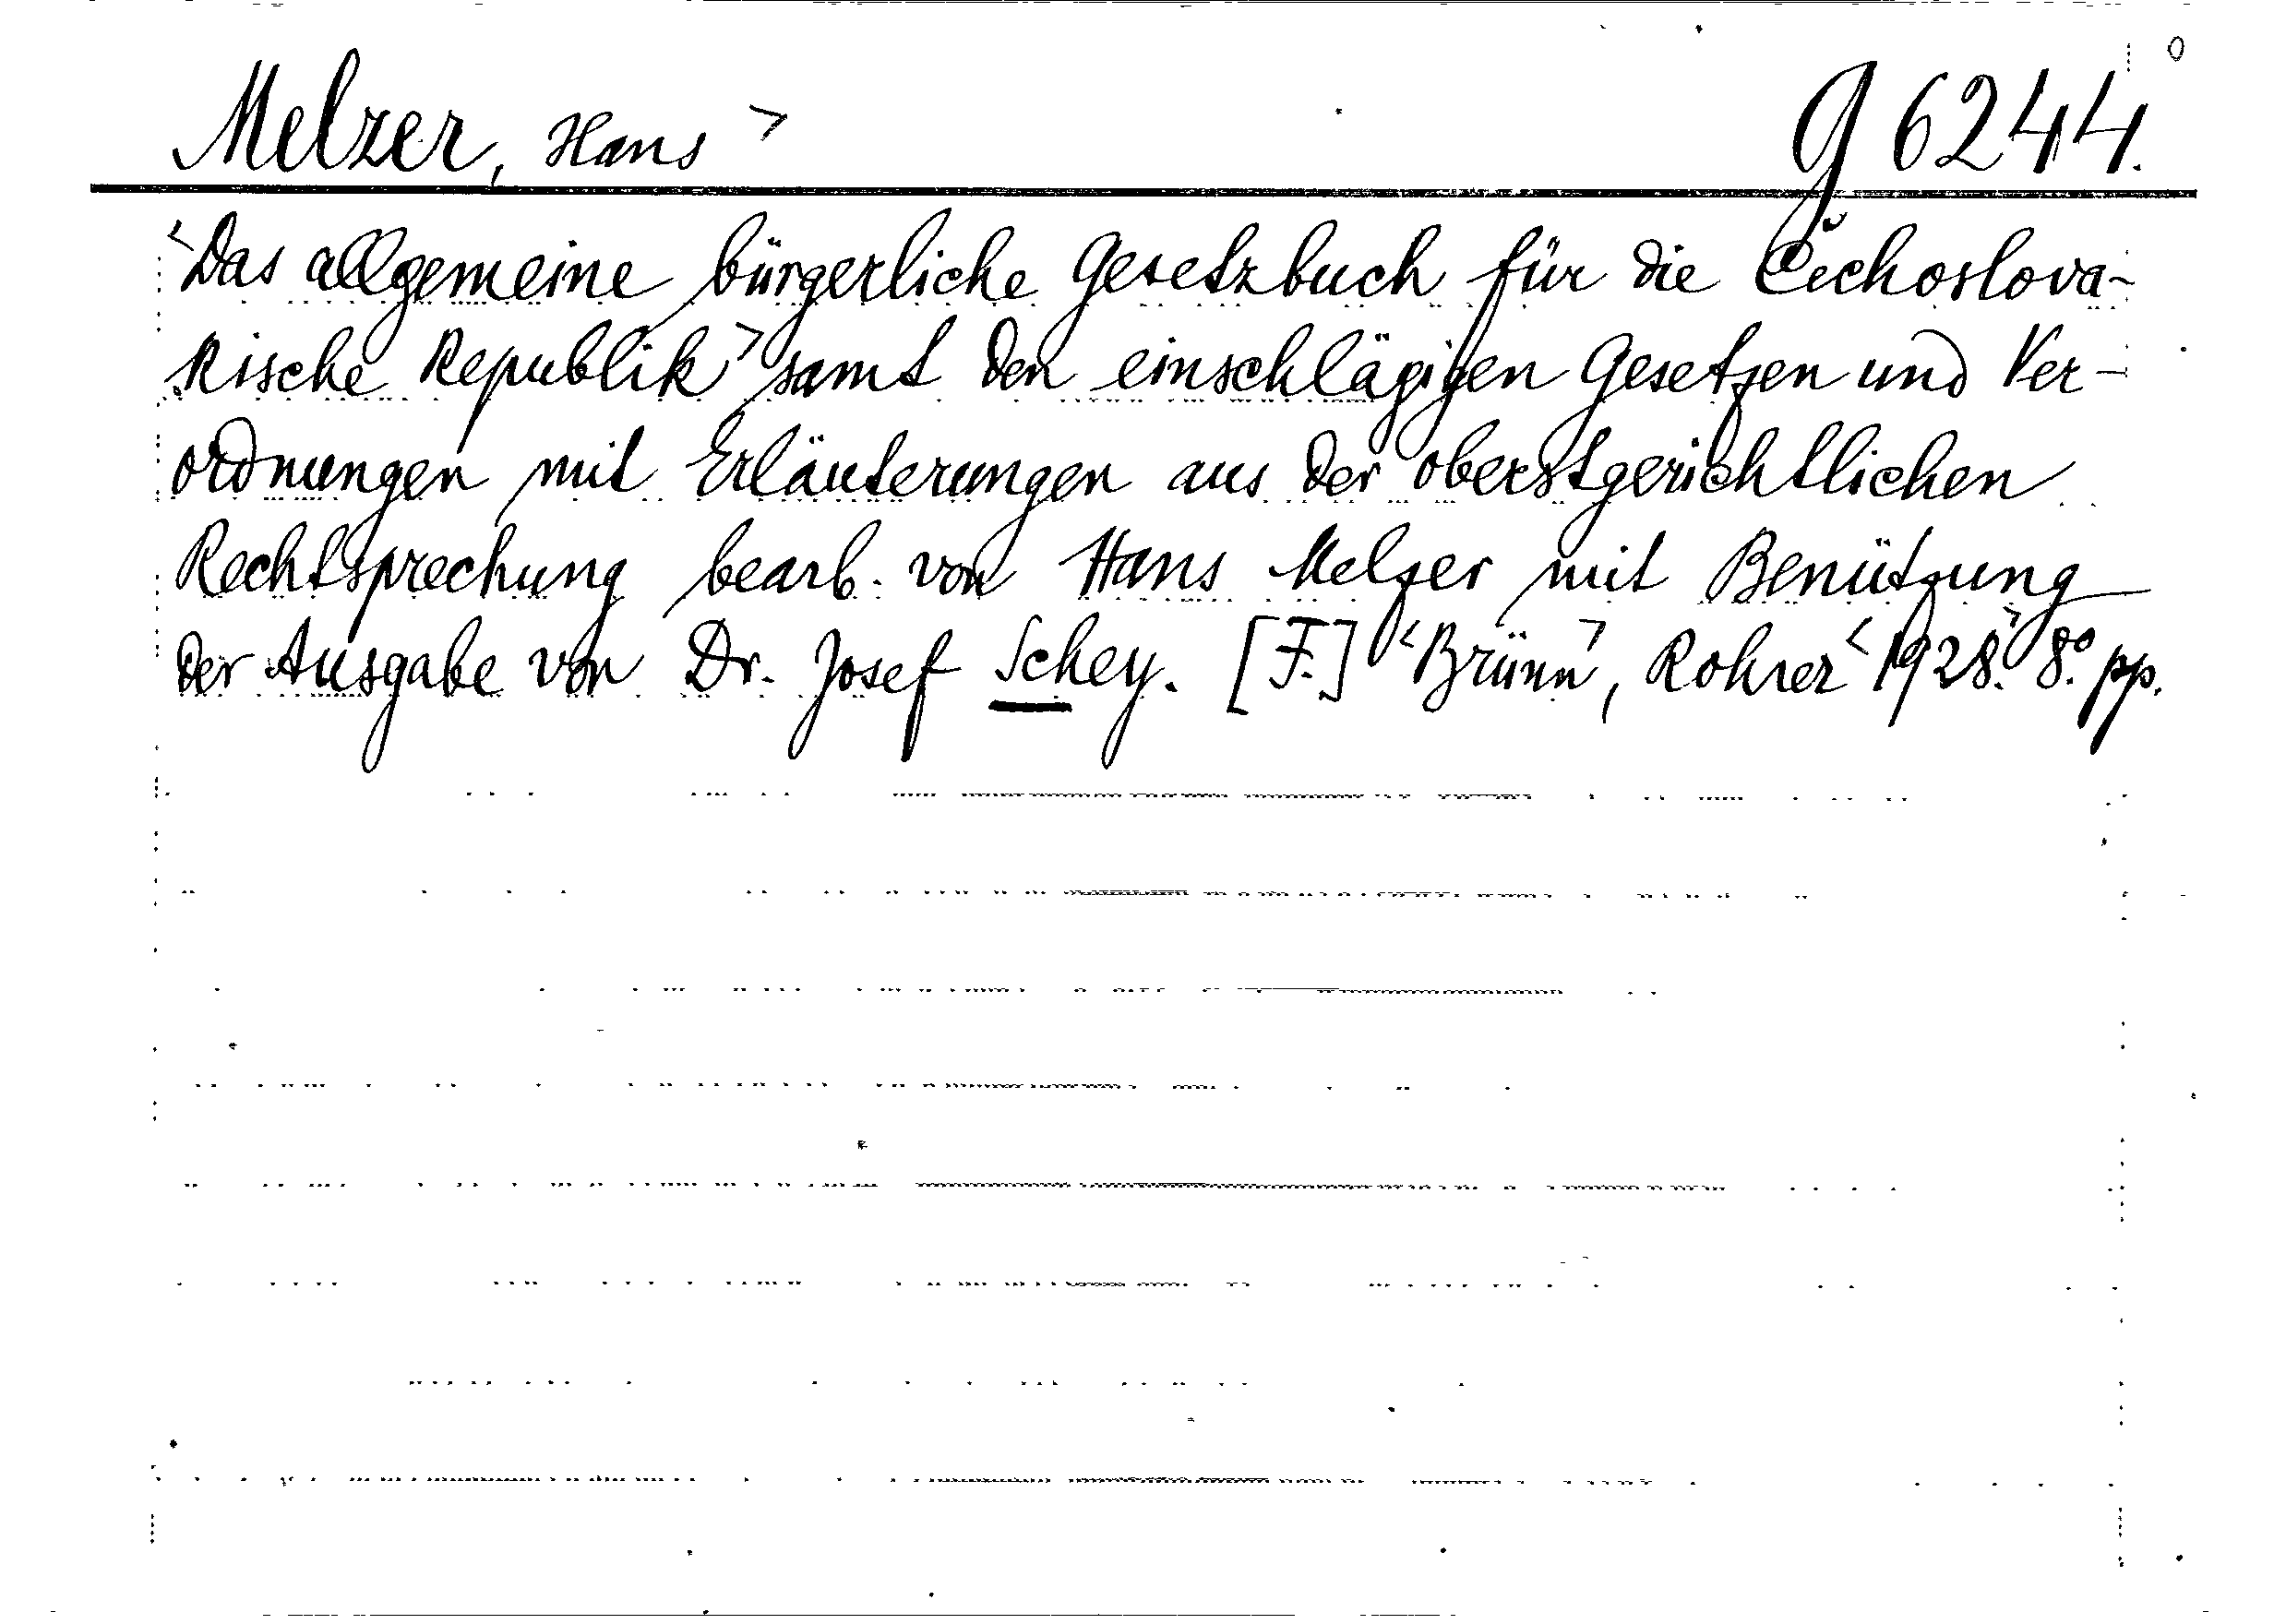 Melzer, Hans > g 6244.
<Das allgemeine bürgerliche Gesetzbuch für die Čechoslova-
kische Republik> samt den einschlägigen Gesetzen und Ver-
ordnungen mit Erläuterungen aus der oberstgerichtlichen
Rechtsprechung bearb. von Hans Melzer mit Benützung
der Ausgabe von Dr. Josef Schey. [F.] <Brünn>, Rohrer <1928.> 8.° pp.